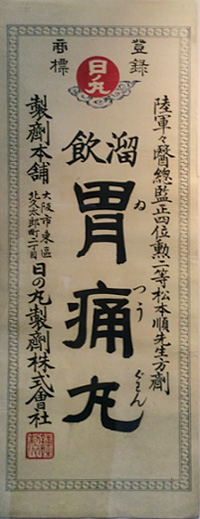 登録
商標
日ノ丸
陸軍々醫總監正四位勲二等松本順先生方劑
溜飲
胃痛丸
ゐ
つう
ぐわん
製劑本舗
大阪市東區
北久太郎町二丁目
日の丸製劑株式會社